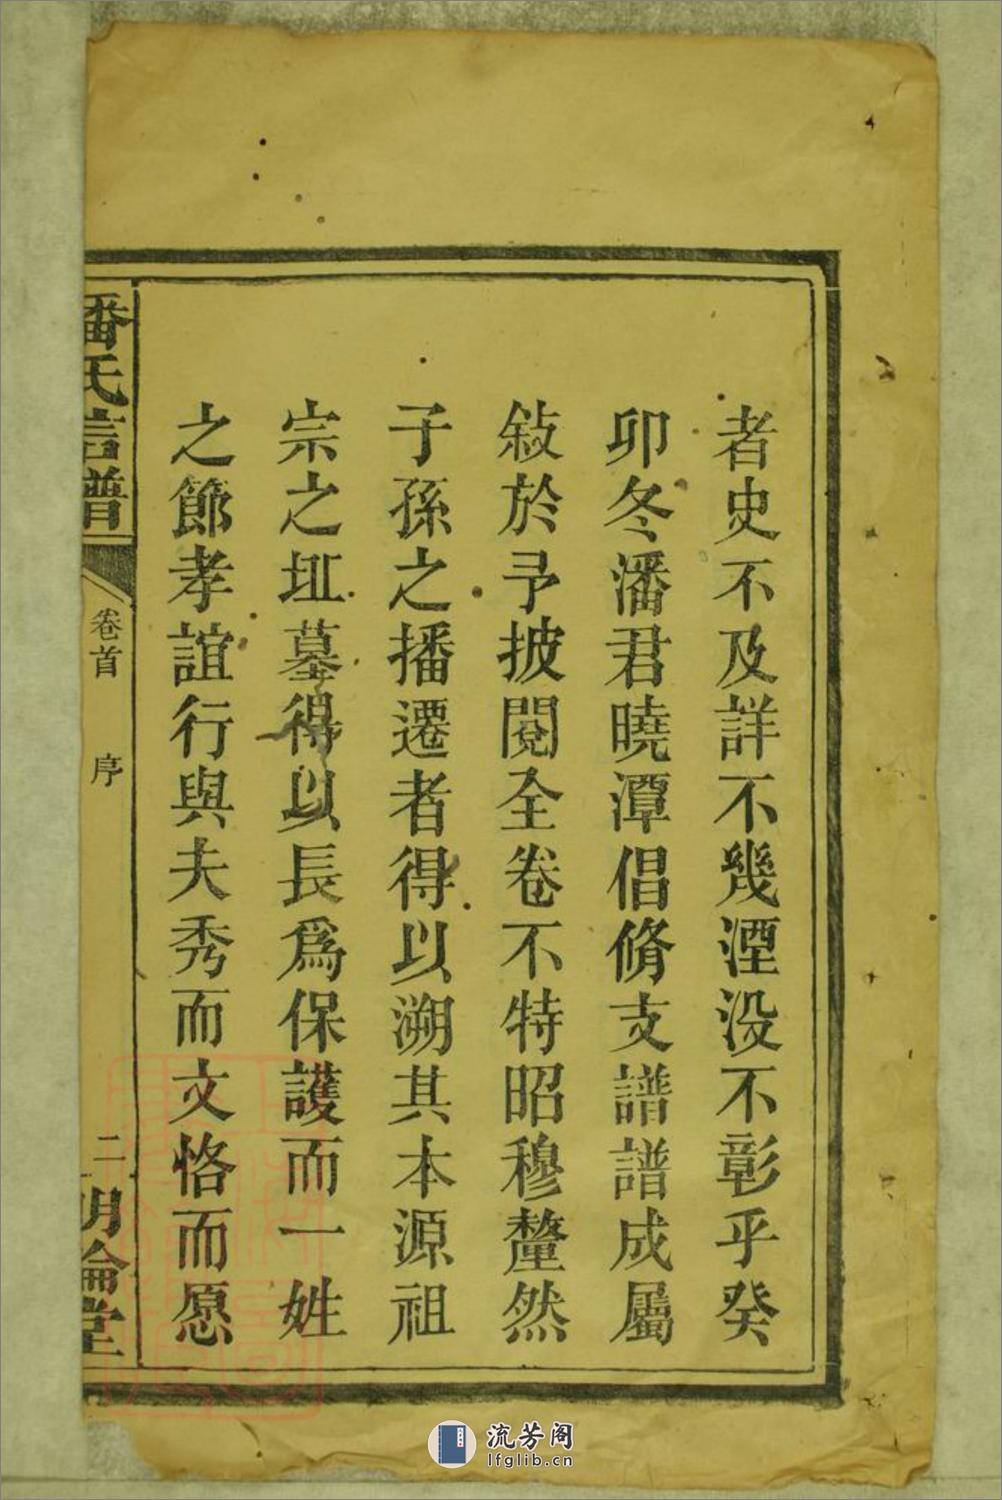 者史不及詳不幾湮没不彰乎癸
卯冬潘君曉潭倡脩支譜譜成屬
敍於予披閱全卷不特昭穆釐然
子孫之播遷者得以溯其本源祖
宗之坵墓得以長爲保護而一姓
之節孝誼行與夫秀而文恪而愿
潘氏宗譜
卷首
序
二
明倫堂
流芳阁
lfglib.cn